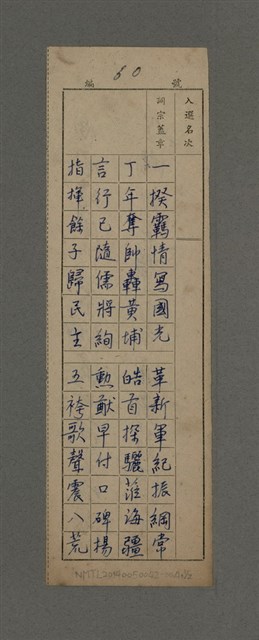 編 60 號
入選名次
詞宗蓋章
一揆羈情寫國光 革新軍紀振綱常
丁年奪帥轟黃埔 皓首探驪涖海疆
言行已隨儒將絢 勲猷早付口碑揚
指揮餘子歸民主 五袴歌聲震八荒